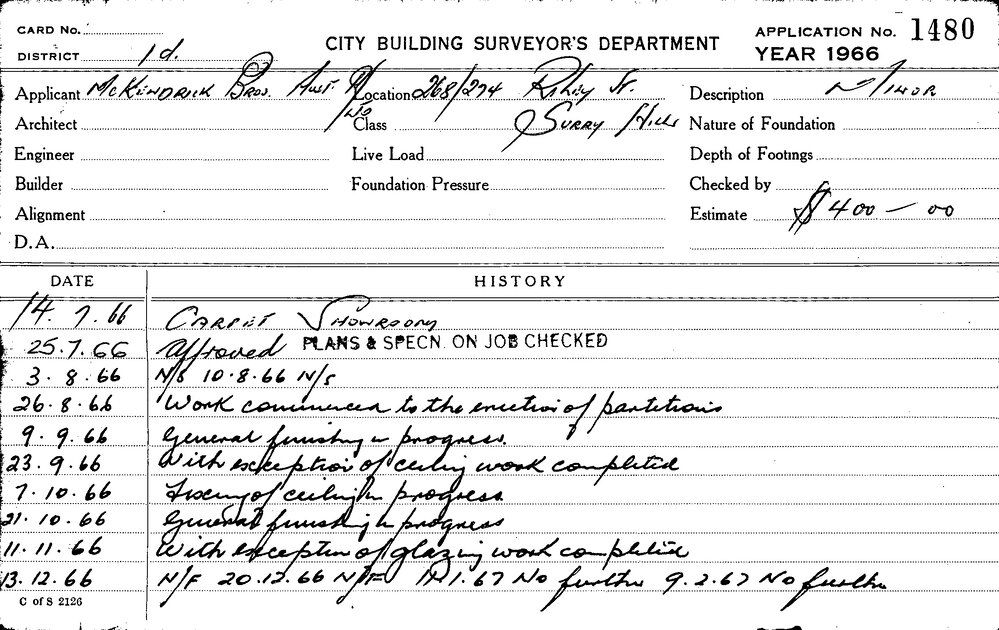 CARD No.
DISTRICT 1d.
CITY BUILDING SURVEYOR'S DEPARTMENT
APPLICATION No. 1480
YEAR 1966
Applicant McKendrick Bros. Aust. P/L Location 268/274 Riley St. Description Minor
Architect Class Surry Hills Nature of Foundation
Engineer Live Load Depth of Footings
Builder Foundation Pressure Checked by
Alignment Estimate $400-00
D.A.
DATE HISTORY
14.7.66 Carpet Showroom
25.7.66 Approved PLANS & SPECN. ON JOB CHECKED
3.8.66 N/S 10.8.66 N/S
26.8.66 Work commenced to the erection of partitions
9.9.66 General finishing in progress.
23.9.66 With exception of ceiling work completed
7.10.66 Fixing of ceiling in progress
21.10.66 General finishing in progress
11.11.66 With exception of glazing work completed
13.12.66 N/F 20.12.66 N/F 1.67 No further 9.2.67 No further
C of S 2126